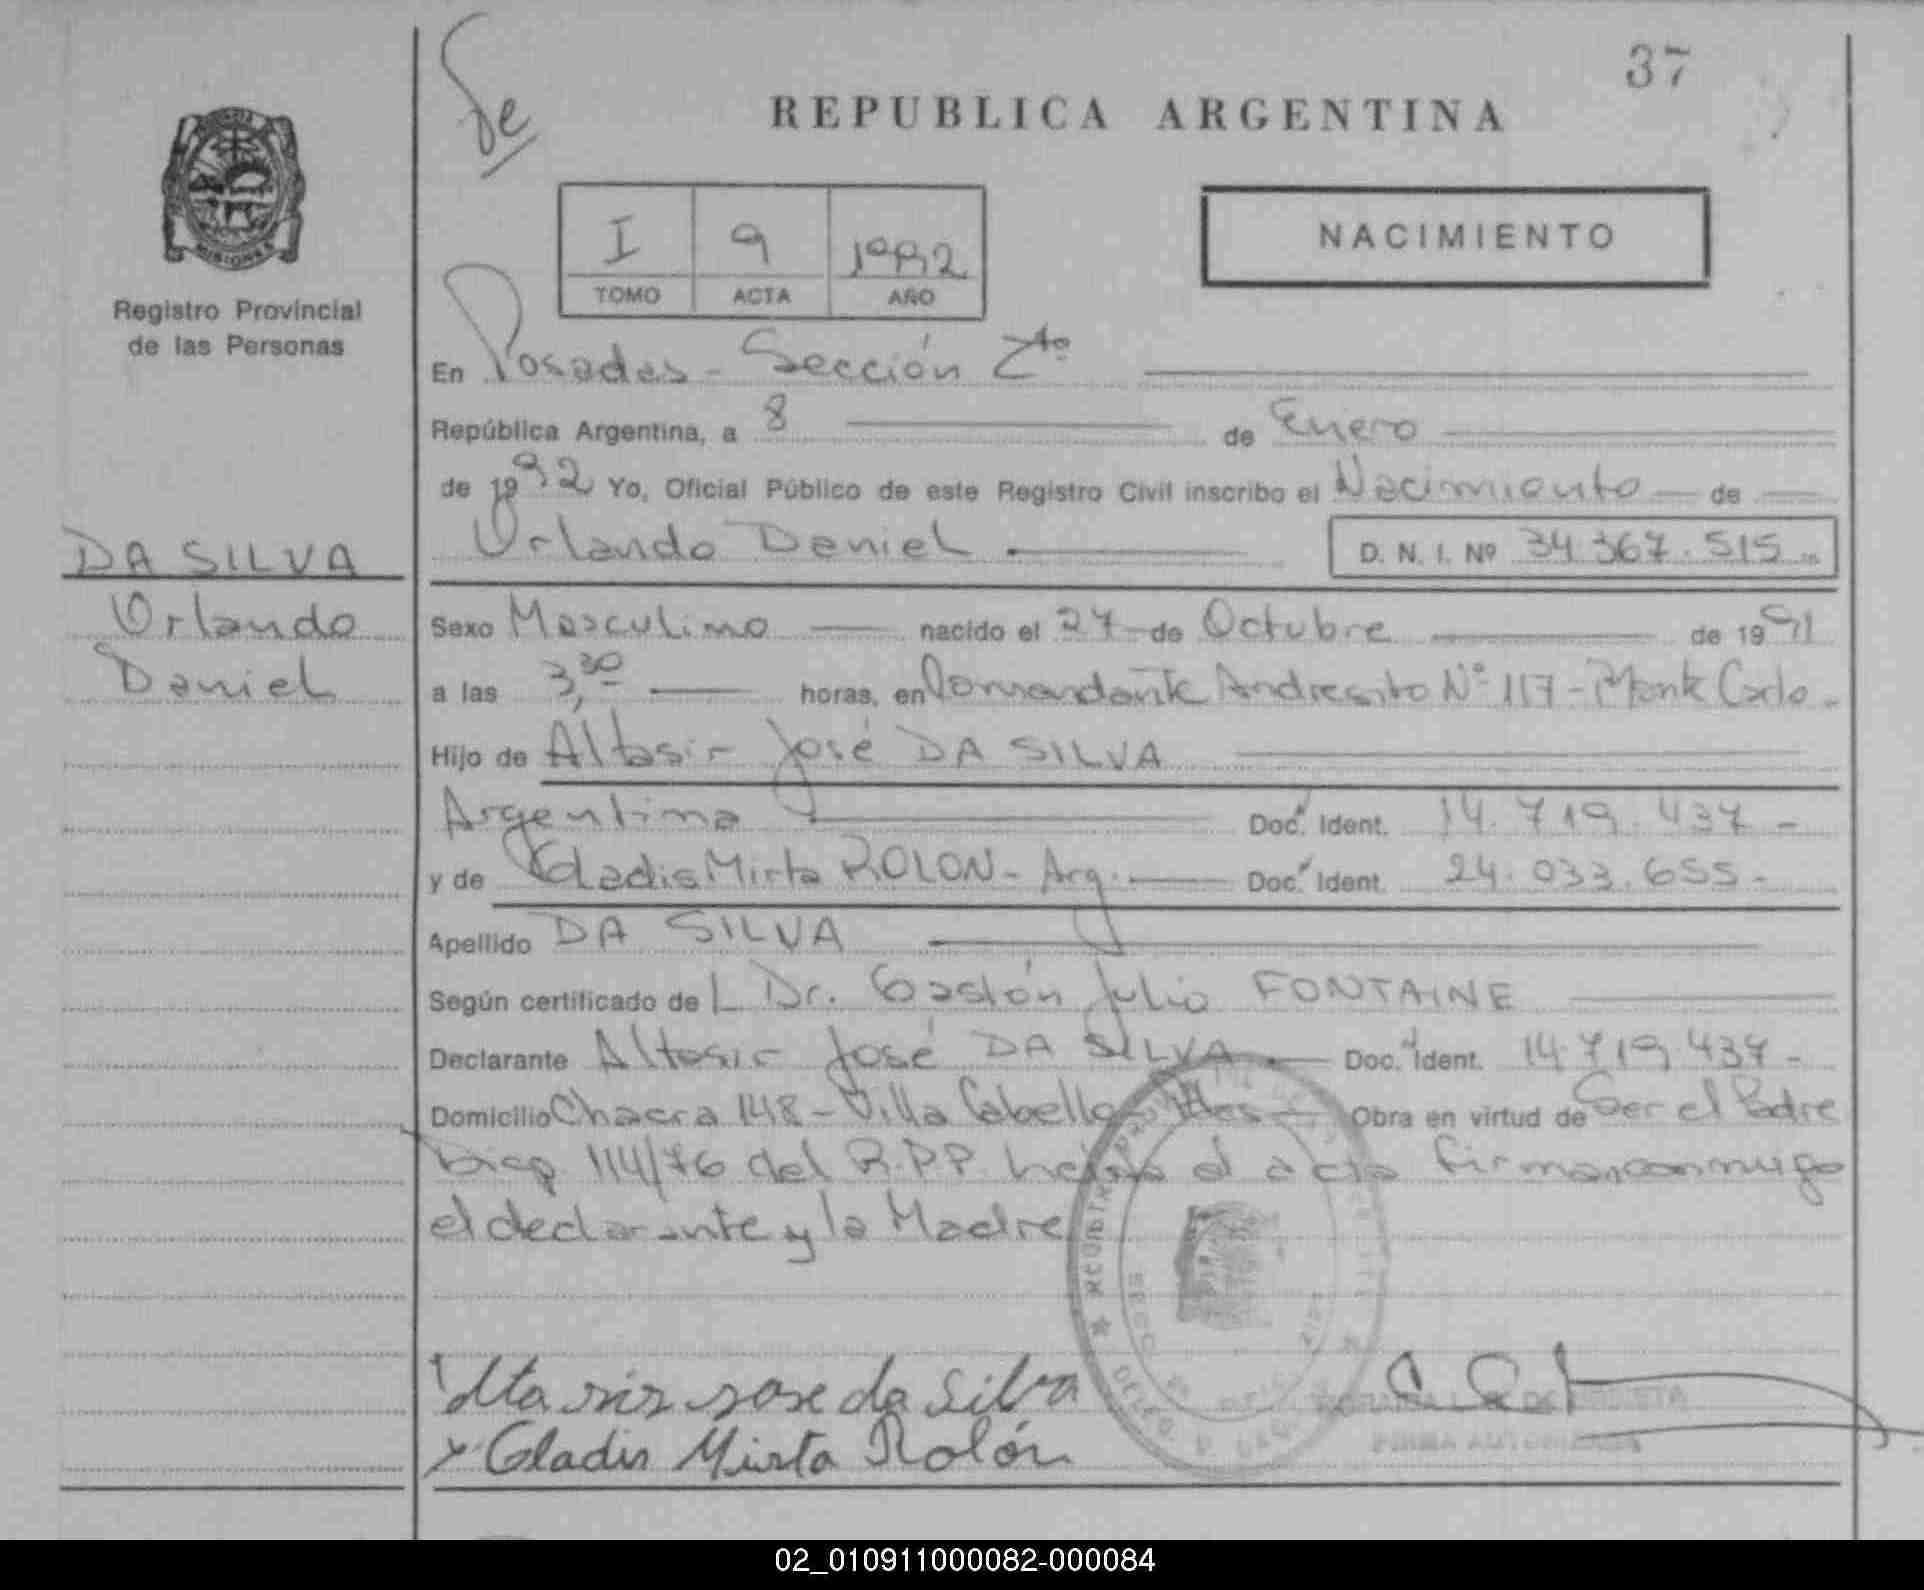 37
Je
REPUBLICA ARGENTINA
MISIONES
Registro Provincial
de las Personas
I 9 1992
TOMO ACTA AÑO
NACIMIENTO
En Posadas - Sección 7ta
República Argentina, a 8 de Enero
de 1992 Yo, Oficial Público de este Registro Civil inscribo el Nacimiento de
Orlando Daniel D. N. I. Nº 34.367.515
DA SILVA
Orlando
Daniel
Sexo Masculino nacido el 27 de Octubre de 1991
a las 3,30 horas, en Comandante Andresito Nº 117 - Monte Carlo -
Hijo de Altasir José DA SILVA
Argentina Doc. Ident. 14.719.437 -
y de Gladis Mirta ROLON - Arg. Doc. Ident. 24.033.655 -
Apellido DA SILVA
Según certificado de L Dr. Gastón Julio FONTAINE
Declarante Altasir José DA SILVA Doc. Ident. 14.719.437 -
Domicilio Chacra 148 - Villa Cabello Obra en virtud de Ser el Padre
Disp 114/76 del R.P.P. el acta firman conmigo
el declarante y la Madre
Altasir Jose da Silva
x Gladis Mirta Rolón
FIRMA AUTORIZADA
02_010911000082-000084